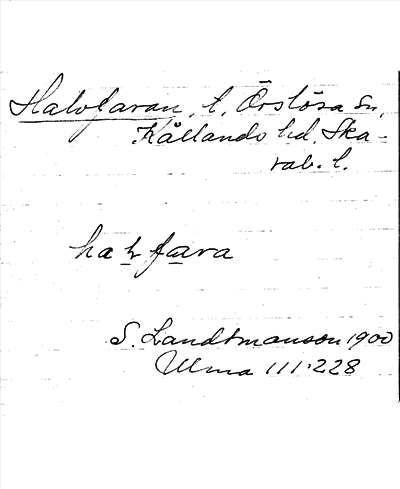 Halvfaran, t. Örslösa sn,
Kållands hd, Ska-
rab. l.
halvfara
S. Landtmanson 1900
Ulma 111:228